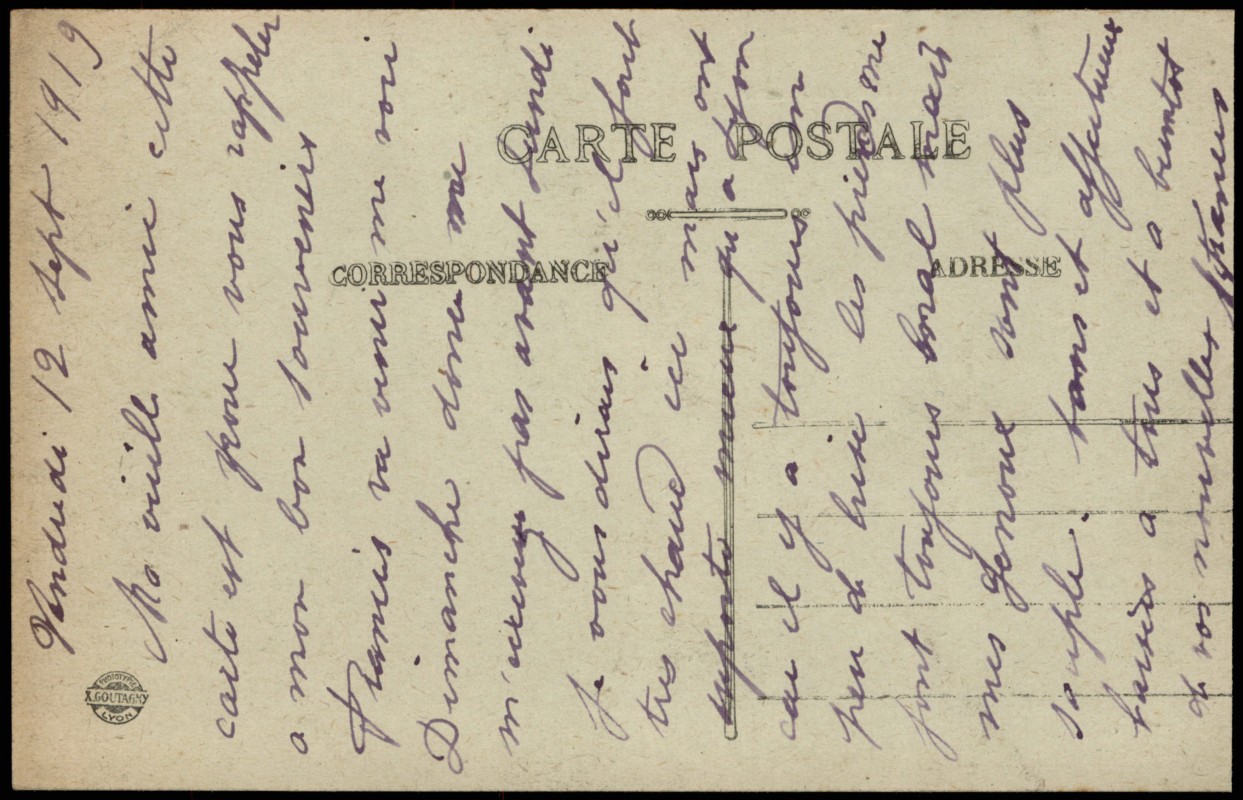 CARTE POSTALE
CORRESPONDANCE
ADRESSE
PHOTOTYPIE
X. GOUTAGNY
LYON
Vendredi 12 sept 1919
Ma vielle amie cette
carte est pour vous rappeler
a mon bon souvenir
Francis va venir me voir
Dimanche donc ne
m'ecrivez pas avant Lundi
Je vous dirais qu'il fait
tres chaud ici mais on
suporte mieux qu a Lyon
car il y a toujours un
peu de brise les pieds me
font toujours bocal mais
mes genoux sont plus
souple. tams et affectueux
baisers a tous et a bientot
de vos nouvelles